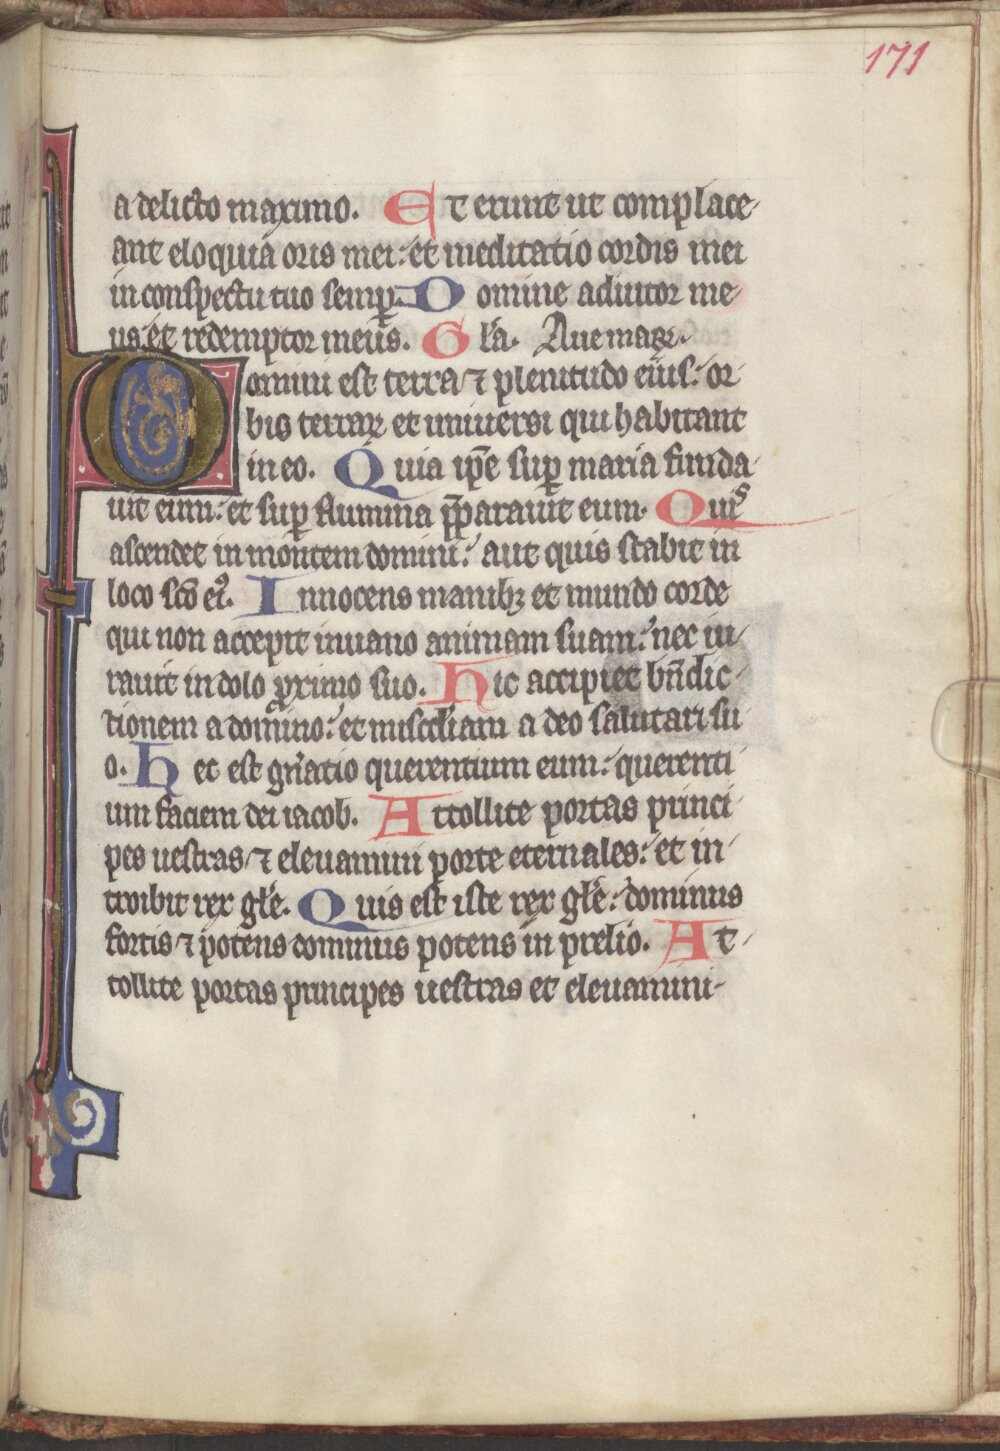 171
a delicto maximo. Et erunt ut complace-
ant eloquia oris mei: et meditatio cordis mei
in conspectu tuo semp. Domine adiutor me-
us: et redemptor meus. Gła. Aue maria.
Domini est terra ⁊ plenitudo eius: or-
bis terraꝝ et uniuersi qui habitant
in eo. Quia ip̄e suꝑ maria funda-
uit eum: et suꝑ flumina p̄parauit eum. Quis
ascendet in montem domini: aut quis stabit in
loco sc̄o eiꝰ. Innocens manibꝫ et mundo corde
qui non accepit in uano animam suam: nec iu-
rauit in dolo ꝓximo suo. Hic accipiet bn̄dic-
tionem a domino: et misc̄d̄iam a deo salutari su-
o. Hec est gn̄atio querentium eum: querenti-
um faciem dei iacob. Attollite portas princi-
pes uestras ⁊ eleuamini porte eternales: et in-
troibit rex głe. Quis est iste rex głe: dominus
fortis ⁊ potens dominus potens in prelio. At-
tollite portas principes uestras et eleuamini-